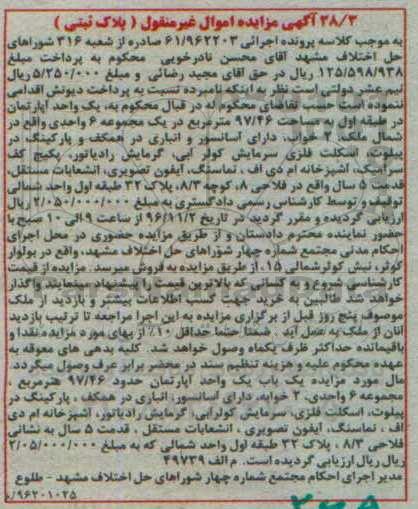 ۲۸/۳ آگهی مزایده اموال غیرمنقول ( پلاک ثبتی )
به موجب کلاسه پرونده اجرائی ۶۱/۹۶۲۲۰۳ صادره از شعبه ۳۱۶ شوراهای
حل اختلاف مشهد آقای محسن نادرخویی محکوم به پرداخت مبلغ
۱۲۵/۵۹۸/۹۳۸ ریال در حق آقای مجید رضائی و مبلغ ۵/۲۵۰/۰۰۰ ریال
نیم عشر دولتی است نظر به اینکه نامبرده نسبت به پرداخت دیونش اقدامی
ننموده است حسب تقاضای محکوم له در قبال محکوم به، یک واحد آپارتمان
در طبقه اول به مساحت ۹۷/۴۶ مترمربع در یک مجموعه ۶ واحدی واقع در
شمال ملک، ۲ خواب، دارای آسانسور و انباری در همکف و پارکینگ در
پیلوت، اسکلت فلزی سرمایش کولر آبی، گرمایش رادیاتور، پکیج کف
سرامیک، آشپزخانه ام دی اف ، نماسنگ، آیفون تصویری، انشعابات مستقل
قدمت ۵ سال واقع در فلاحی ۸، کوچه ۸/۳، پلاک ۳۲ طبقه اول واحد شمالی
توقیف و توسط کارشناس رسمی دادگستری به مبلغ ۲/۰۵۰/۰۰۰/۰۰۰ ریال
ارزیابی گردیده و مقرر گردید در تاریخ ۹۶/۱۱/۲ از ساعت ۹ الی ۱۰ صبح با
حضور نماینده محترم دادستان و از طریق مزایده حضوری در محل اجرای
احکام مدنی مجتمع شماره چهار شوراهای حل اختلاف مشهد، واقع در بولوار
کوثر، نبش کوثرشمالی ۱۵، از طریق مزایده به فروش میرسد. مزایده از قیمت
کارشناسی شروع و به کسانی که بالاترین قیمت را پیشنهاد مینمایند واگذار
خواهد شد طالبین به خرید جهت کسب اطلاعات بیشتر و بازدید از ملک
موصوف پنج روز قبل از برگزاری مزایده به این اجرا مراجعه تا ترتیب بازدید
آنان از ملک به عمل آید . ضمنا حتما حداقل ۱۰٪ از بهای مورد مزایده نقدا و
باقیمانده حداکثر ظرف یکماه وصول خواهد شد. کلیه بدهی های معوقه به
عهده محکوم علیه و هزینه تنظیم سند در محضر برابر عرف وصول میگردد.
مال مورد مزایده یک باب یک واحد آپارتمان حدود ۹۷/۴۶ مترمربع ،
مجموعه ۶ واحدی، ۲ خوابه، دارای آسانسور، انباری در همکف ، پارکینگ در
پیلوت، اسکلت فلزی، سرمایش کولرابی، گرمایش رادیاتور، آشپزخانه ام دی
اف ، نماسنگ، آیفون تصویری ، انشعابات مستقل ، قدمت ۵ سال به نشانی
فلاحی ۸/۳ ، پلاک ۳۲ طبقه اول واحد شمالی که به مبلغ ۲/۰۵/۰۰۰/۰۰۰
ریال ریال ارزیابی گردیده است. م الف ۴۹۷۳۹
مدیر اجرای احکام مجتمع شماره چهار شوراهای حل اختلاف مشهد - طلوع
/۹۶۲۰۱۰۲۵